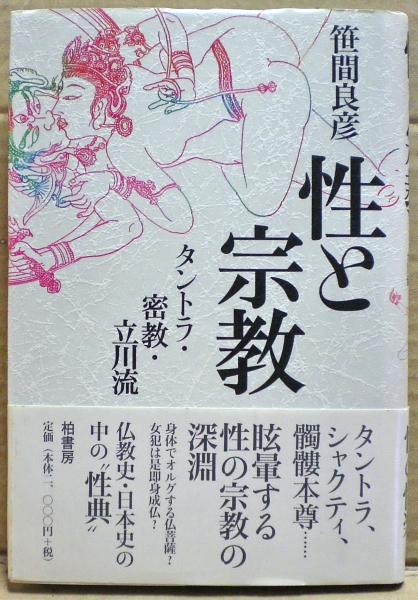 笹間良彦
性と
宗教
タントラ・
密教・
立川流
タントラ、
シャクティ、
髑髏本尊……
眩暈する
性の宗教の
深淵
身体でオルグする仏菩薩?
女犯は是即身成仏?
仏教史・日本史の
中の〝性典〟
柏書房
定価(本体二、〇〇〇円+税)